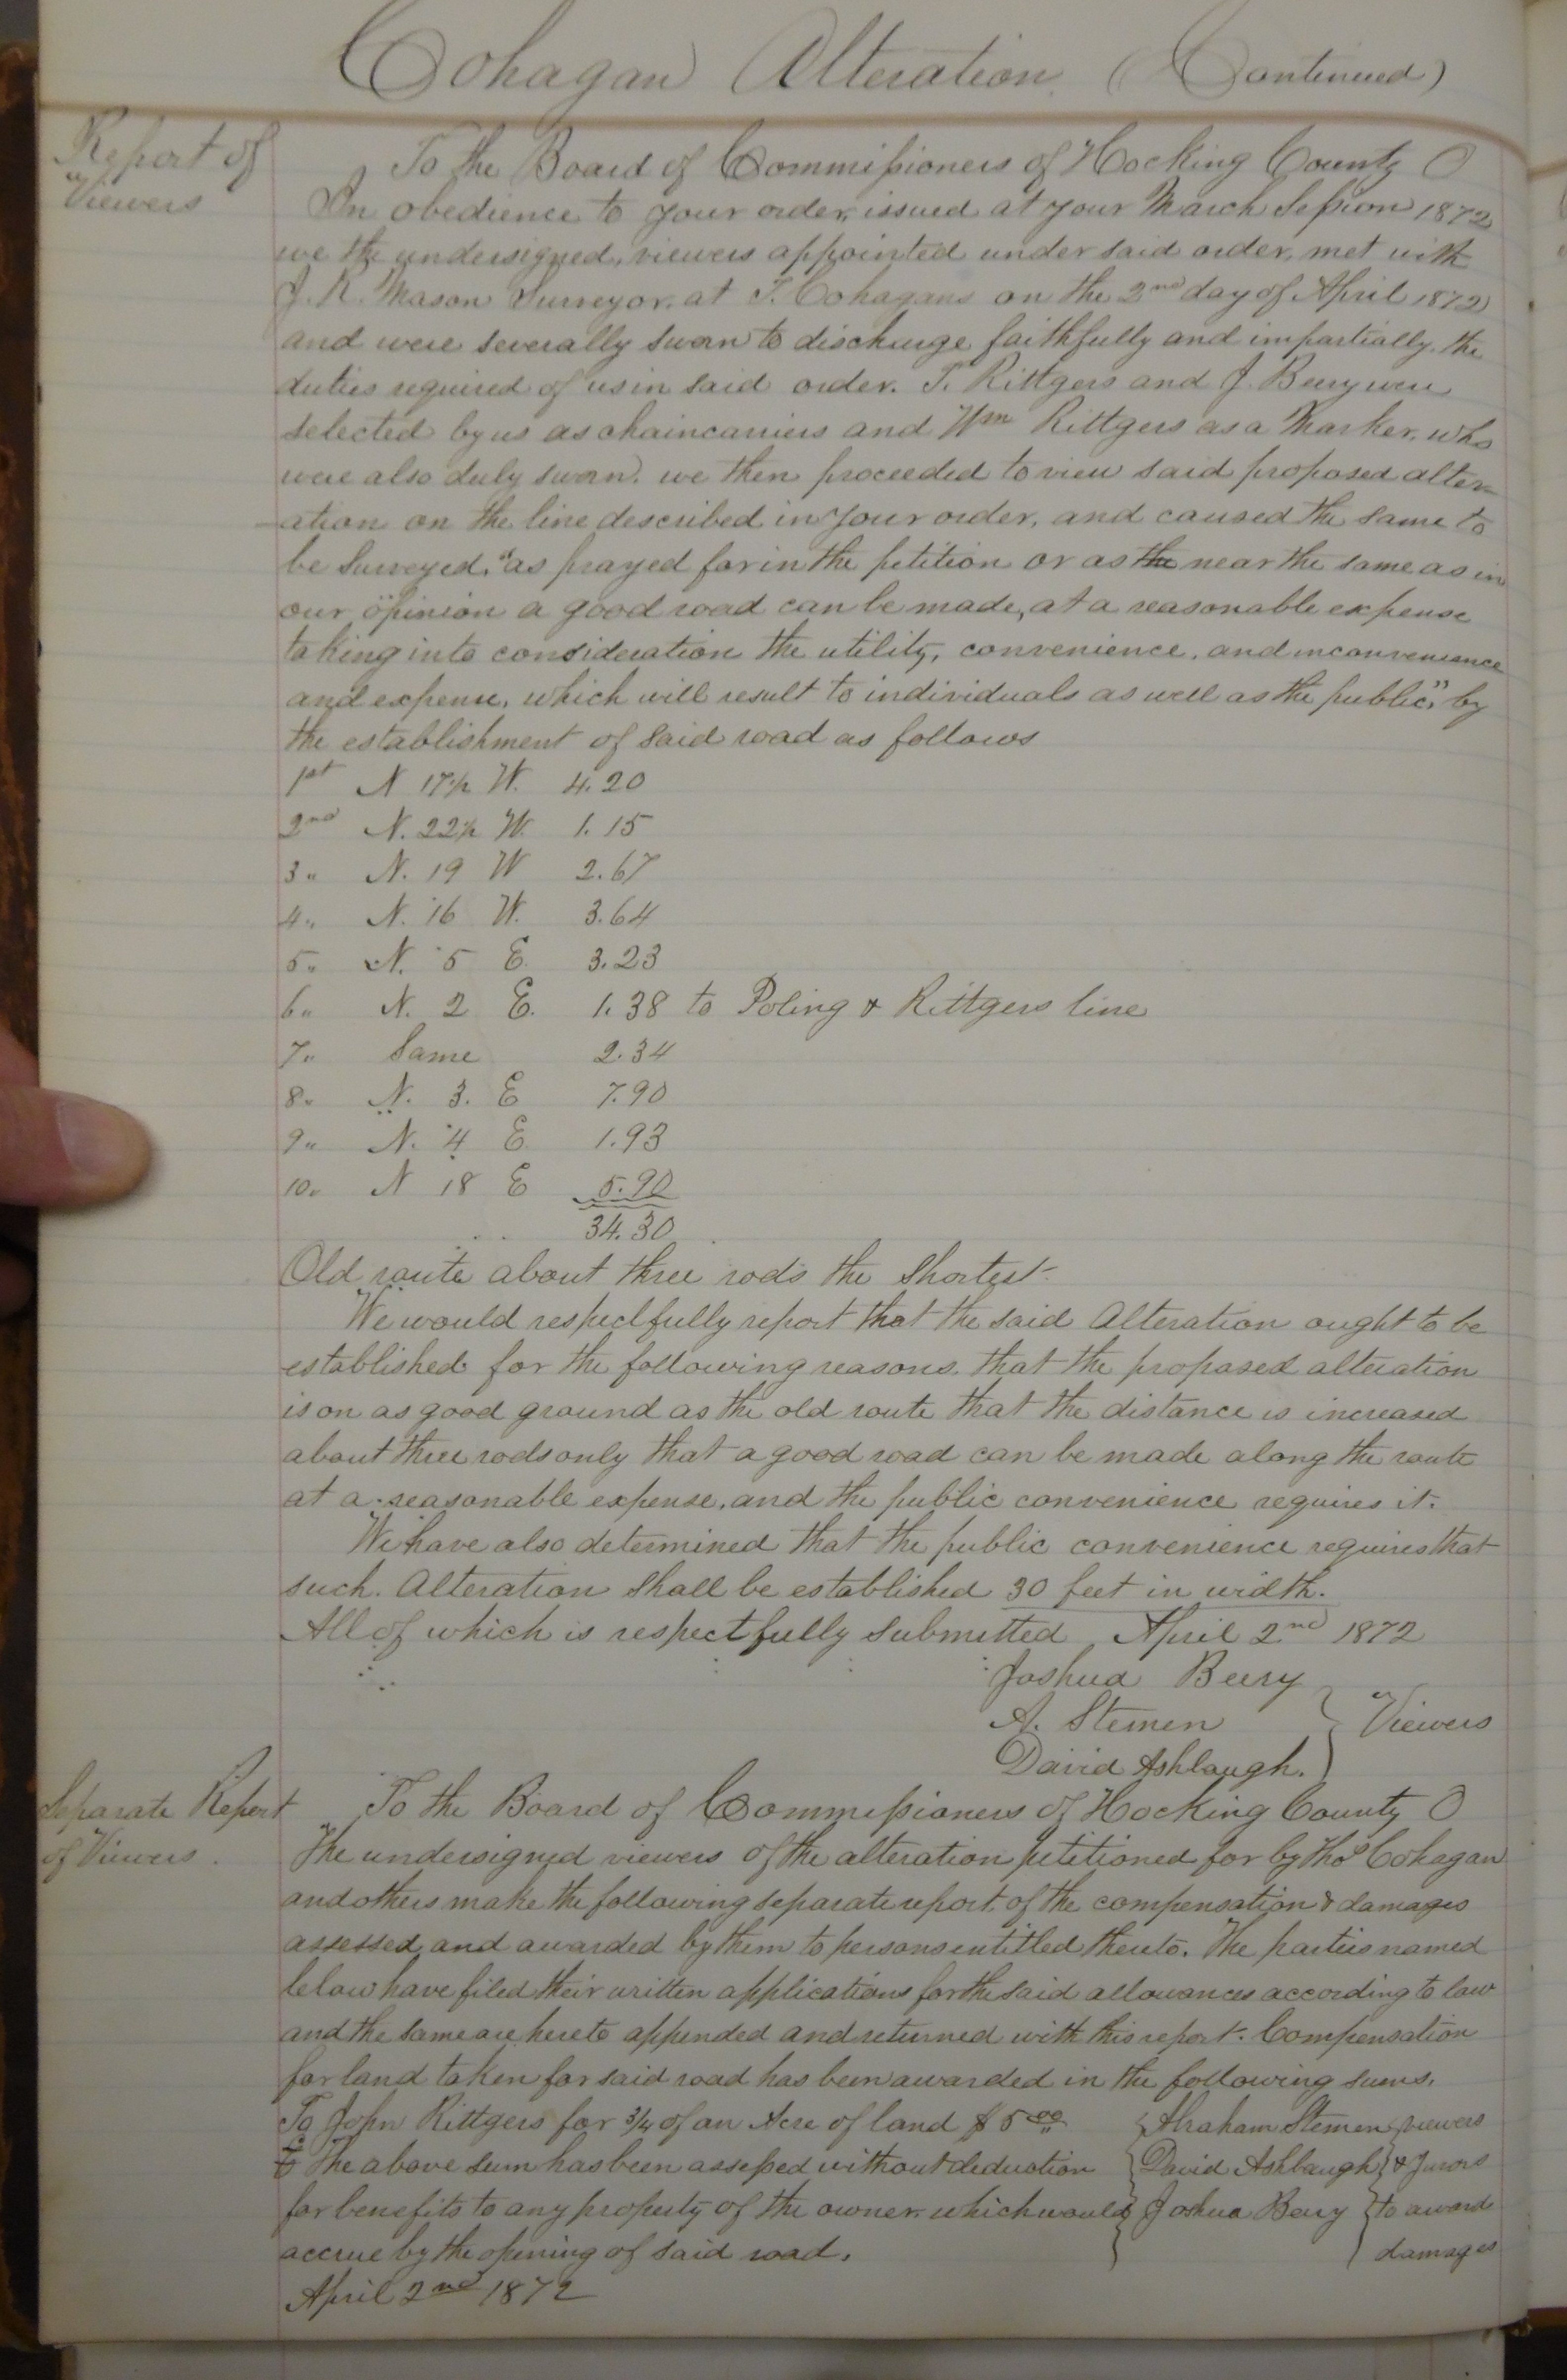 Cohagan Alteration (Continued)
Report of
Viewers
To the Board of Commissioners of Hocking County O
In obedience to your order, issued at your March Session 1872
we the undersigned, viewers appointed under said order, met with
J. R. Mason Surveyor, at T. Cohagans on the 2nd day of April 1872
and were severally sworn to discharge faithfully and impartially, the
duties required of us in said order. T. Rittgers and J. Beery were
selected by us as chaincarriers and Wm Rittgers as a Marker, who
were also duly sworn. we then proceeded to view said proposed alter-
-ation on the line described in your order, and caused the same to
be Surveyed, "as prayed for in the petition or as the near the same as in
our opinion a good road can be made, at a reasonable expense
taking into consideration the utility, convenience, and inconvenience
and expense, which will result to individuals as well as the public," by
the establishment of said road as follows
1st N 17½ W. 4.20
2nd N. 22½ W. 1.15
3 " N. 19 W 2.67
4 " N. 16 W. 3.64
5 " N. 5 E. 3.23
6 " N. 2 E. 1.38 to Poling & Rittgers line
7 " Same 2.34
8 " N. 3. E 7.90
9 " N. 4 E 1.93
10 " N 18 E 5.90
34.30
Old route about three rods the Shortest.
We would respectfully report that the said Alteration ought to be
established for the following reasons. that the proposed alteration
is on as good ground as the old route that the distance is increased
about three rods only that a good road can be made along the route
at a reasonable expense, and the public convenience requires it.
We have also determined that the public convenience requires that
such Alteration Shall be established 30 feet in width.
All of which is respectfully Submitted April 2nd 1872
Joshua Beery
A. Stemen } Viewers
David Ashbaugh.
Separate Report
of Viewers.
To the Board of Commissioners of Hocking County O
The undersigned viewers of the alteration petitioned for by Thos Cohagan
and others make the following separate report of the compensation & damages
assessed, and awarded by them to persons entitled thereto. The parties named
below have filed their written applications for the said allowances according to law
and the same are hereto appended and returned with this report. Compensation
for land taken for said road has been awarded in the following sums.
To John Rittgers for 3/4 of an Acre of land $5.00 Abraham Stemen viewers
The above sum has been assessed without deduction David Ashbaugh & Jurors
for benefits to any property of the owner which would Joshua Beery to award
accrue by the opening of said road. damages
April 2nd 1872